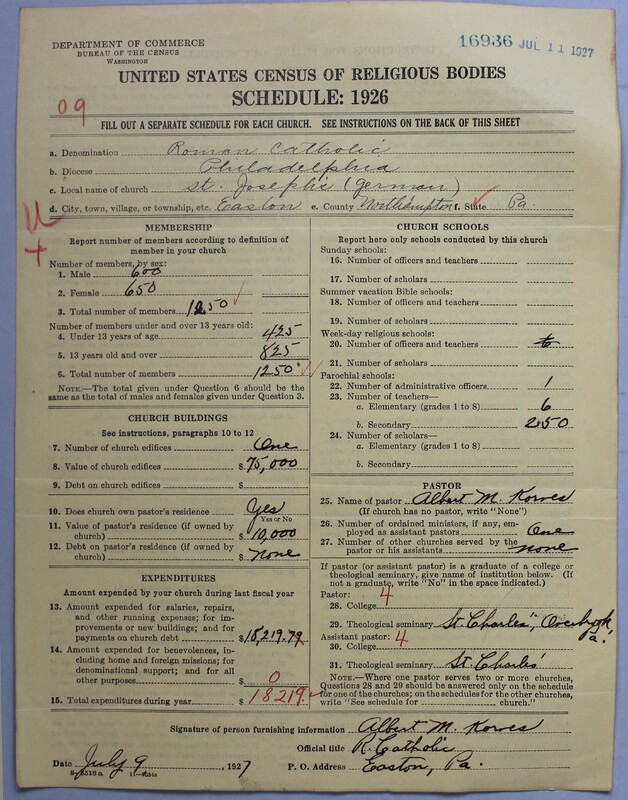 DEPARTMENT OF COMMERCE
BUREAU OF THE CENSUS
WASHINGTON
16936 JUL 11 1927
UNITED STATES CENSUS OF RELIGIOUS BODIES
SCHEDULE: 1926
09
FILL OUT A SEPARATE SCHEDULE FOR EACH CHURCH. SEE INSTRUCTIONS ON THE BACK OF THIS SHEET
a. Denomination Roman Catholic
b. Diocese Philadelphia
c. Local name of church St. Joseph's (German)
d. City, town, village, or township, etc. Easton e. County Northampton f. State Pa.
MEMBERSHIP
Report number of members according to definition of
member in your church
Number of members, by sex:
1. Male 600
2. Female 650
3. Total number of members 1250
Number of members under and over 13 years old:
4. Under 13 years of age 425
5. 13 years old and over 825
6. Total number of members 1250
NOTE.—The total given under Question 6 should be the
same as the total of males and females given under Question 3.
CHURCH BUILDINGS
See instructions, paragraphs 10 to 12
7. Number of church edifices One
8. Value of church edifices $ 75,000
9. Debt on church edifices $
10. Does church own pastor's residence Yes
Yes or No
11. Value of pastor's residence (if owned by
church) $ 10,000
12. Debt on pastor's residence (if owned by
church) $ none
EXPENDITURES
Amount expended by your church during last fiscal year
13. Amount expended for salaries, repairs,
and other running expenses; for improvements
or new buildings; and for
payments on church debt $ 18,219.79
14. Amount expended for benevolences,
including home and foreign missions; for
denominational support; and for all
other purposes $ 0
15. Total expenditures during year $ 18219.
CHURCH SCHOOLS
Report here only schools conducted by this church
Sunday schools:
16. Number of officers and teachers
17. Number of scholars
Summer vacation Bible schools:
18. Number of officers and teachers
19. Number of scholars
Week-day religious schools:
20. Number of officers and teachers 6
21. Number of scholars
Parochial schools:
22. Number of administrative officers 1
23. Number of teachers—
a. Elementary (grades 1 to 8) 6
b. Secondary 250
24. Number of scholars—
a. Elementary (grades 1 to 8)
b. Secondary
PASTOR
25. Name of pastor Albert M. Korves
(If church has no pastor, write "None")
26. Number of ordained ministers, if any, employed
as assistant pastors One
27. Number of other churches served by the
pastor or his assistants none
If pastor (or assistant pastor) is a graduate of a college or
theological seminary, give name of institution below. (If
not a graduate, write "No" in the space indicated.)
Pastor: 4
28. College
29. Theological seminary St. Charles', Overbrook, Pa.
Assistant pastor: 4
30. College
31. Theological seminary St. Charles'
NOTE.—Where one pastor serves two or more churches,
Questions 28 and 29 should be answered only on the schedule
for one of the churches; on the schedules for the other churches,
write "See schedule for church."
Signature of person furnishing information Albert M. Korves
Official title R. Catholic
Date July 9, 1927 P. O. Address Easton, Pa.